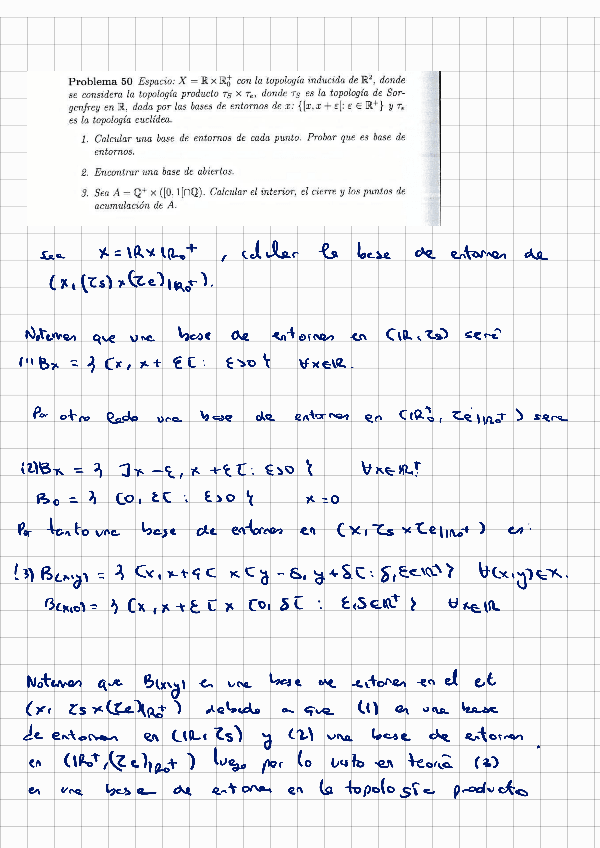 Problema 50 Espacio: X = ℝ × ℝ₀⁺ con la topología inducida de ℝ², donde
se considera la topología producto τ_S × τ_e, donde τ_S es la topología de Sor-
genfrey en ℝ, dada por las bases de entornos de x: {[x, x + ε[: ε ∈ ℝ⁺} y τ_e
es la topología euclídea.
1. Calcular una base de entornos de cada punto. Probar que es base de
entornos.
2. Encontrar una base de abiertos.
3. Sea A = ℚ⁺ × ([0, 1[∩ℚ). Calcular el interior, el cierre y los puntos de
acumulación de A.
sea X = ℝ × ℝ₀⁺ , calcular la base de entornos de
(X, (τ_S) × (τ_e)|ℝ₀⁺).
Notemos que una base de entornos en (ℝ, τ_S) será
(1) B_x = { [x, x + ε[ : ε>0 } ∀x∈ℝ.
Por otro lado una base de entornos en (ℝ₀⁺, τ_e|ℝ₀⁺) será
(2) B_x = { ]x - ε, x + ε[ : ε>0 } ∀x∈ℝ⁺
B_0 = { [0, ε[ : ε>0 } x = 0
Por tanto una base de entornos en (X, τ_S × τ_e|ℝ₀⁺) es:
(3) B(x,y) = { [x, x+ε[ × ]y - δ, y + δ[ : δ, ε∈ℝ⁺ } ∀(x,y)∈X.
B(x,0) = { [x, x + ε[ × [0, δ[ : ε, δ∈ℝ⁺ } ∀x∈ℝ
Notemos que B(x,y) es una base de entornos en el et
(X, τ_S × (τ_e)|ℝ₀⁺) debido a que (1) es una base
de entornos en (ℝ, τ_S) y (2) una base de entornos
en (ℝ₀⁺, (τ_e)|ℝ₀⁺) luego por lo visto en teoría (3)
es una base de entornos en la topología producto